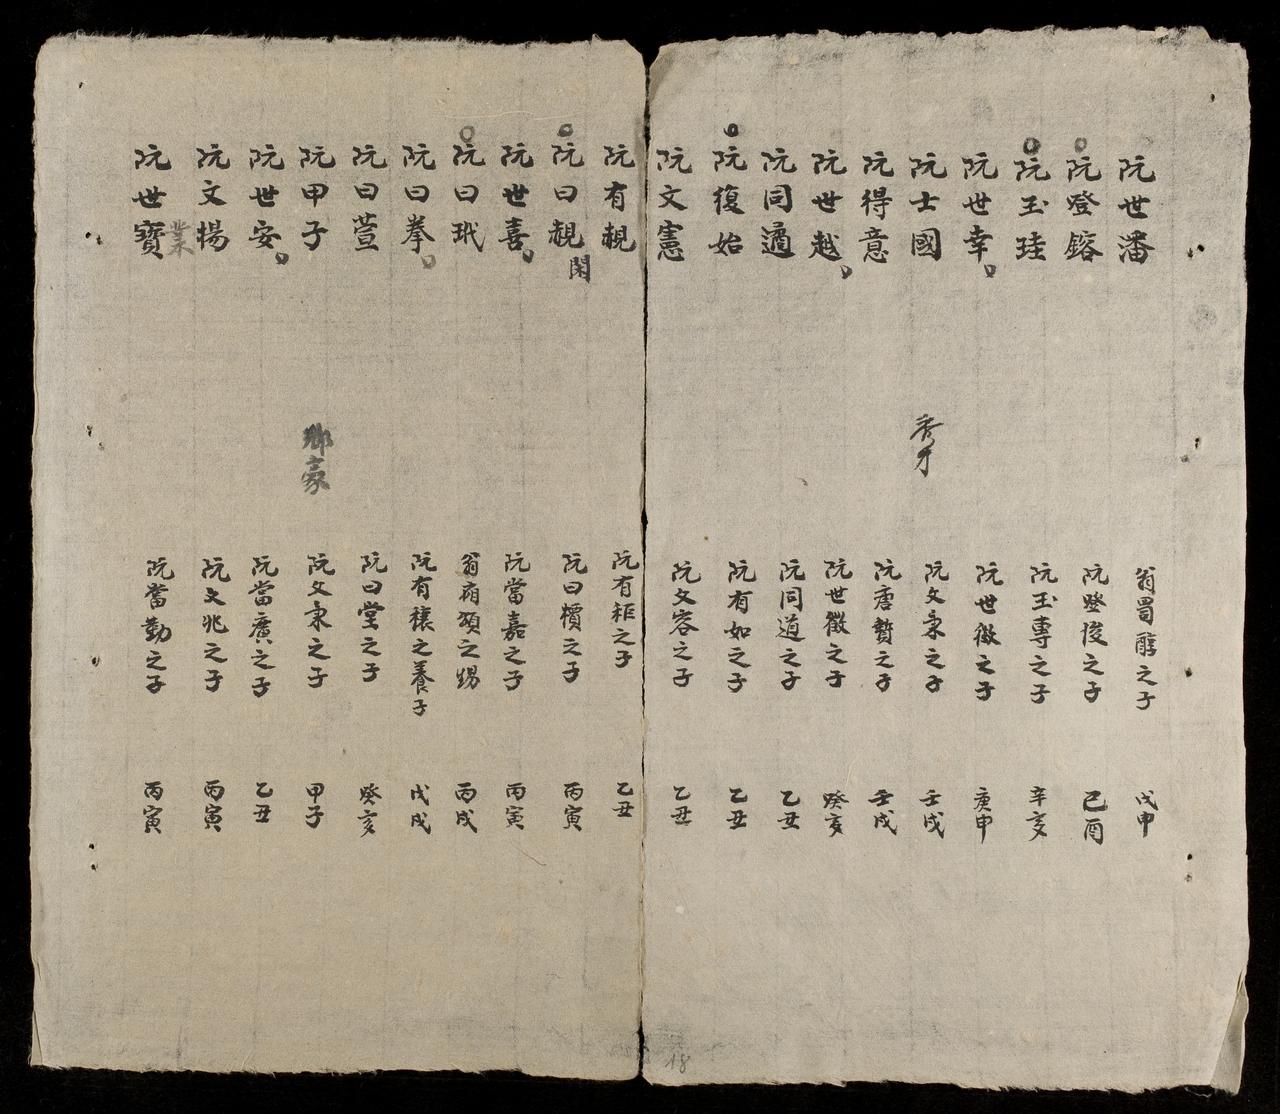 阮世潘 翁蜀醇之子 戊申
阮登鎔 阮登俊之子 己酉
阮玉珪 阮玉專之子 辛亥
阮世幸 阮世徵之子 庚申
阮士國 秀才 阮文秉之子 壬戌
阮得意 阮唐贊之子 壬戌
阮世越 阮世徵之子 癸亥
阮同適 阮同道之子 乙丑
阮復始 阮有如之子 乙丑
阮文憲 阮文容之子 乙丑
阮有親 阮有秬之子 乙丑
阮曰親 閑 阮曰櫝之子 丙寅
阮世喜 阮當嘉之子 丙寅
阮曰玳 翁有碩之甥 丙戌
阮曰拳 阮有穰之養子 戊戌
阮曰萱 阮曰堂之子 癸亥
阮甲子 鄉豪 阮文秉之子 甲子
阮世安 阮當廣之子 乙丑
阮文揚 阮文兆之子 丙寅
阮世寶 業 阮當勤之子 丙寅
18